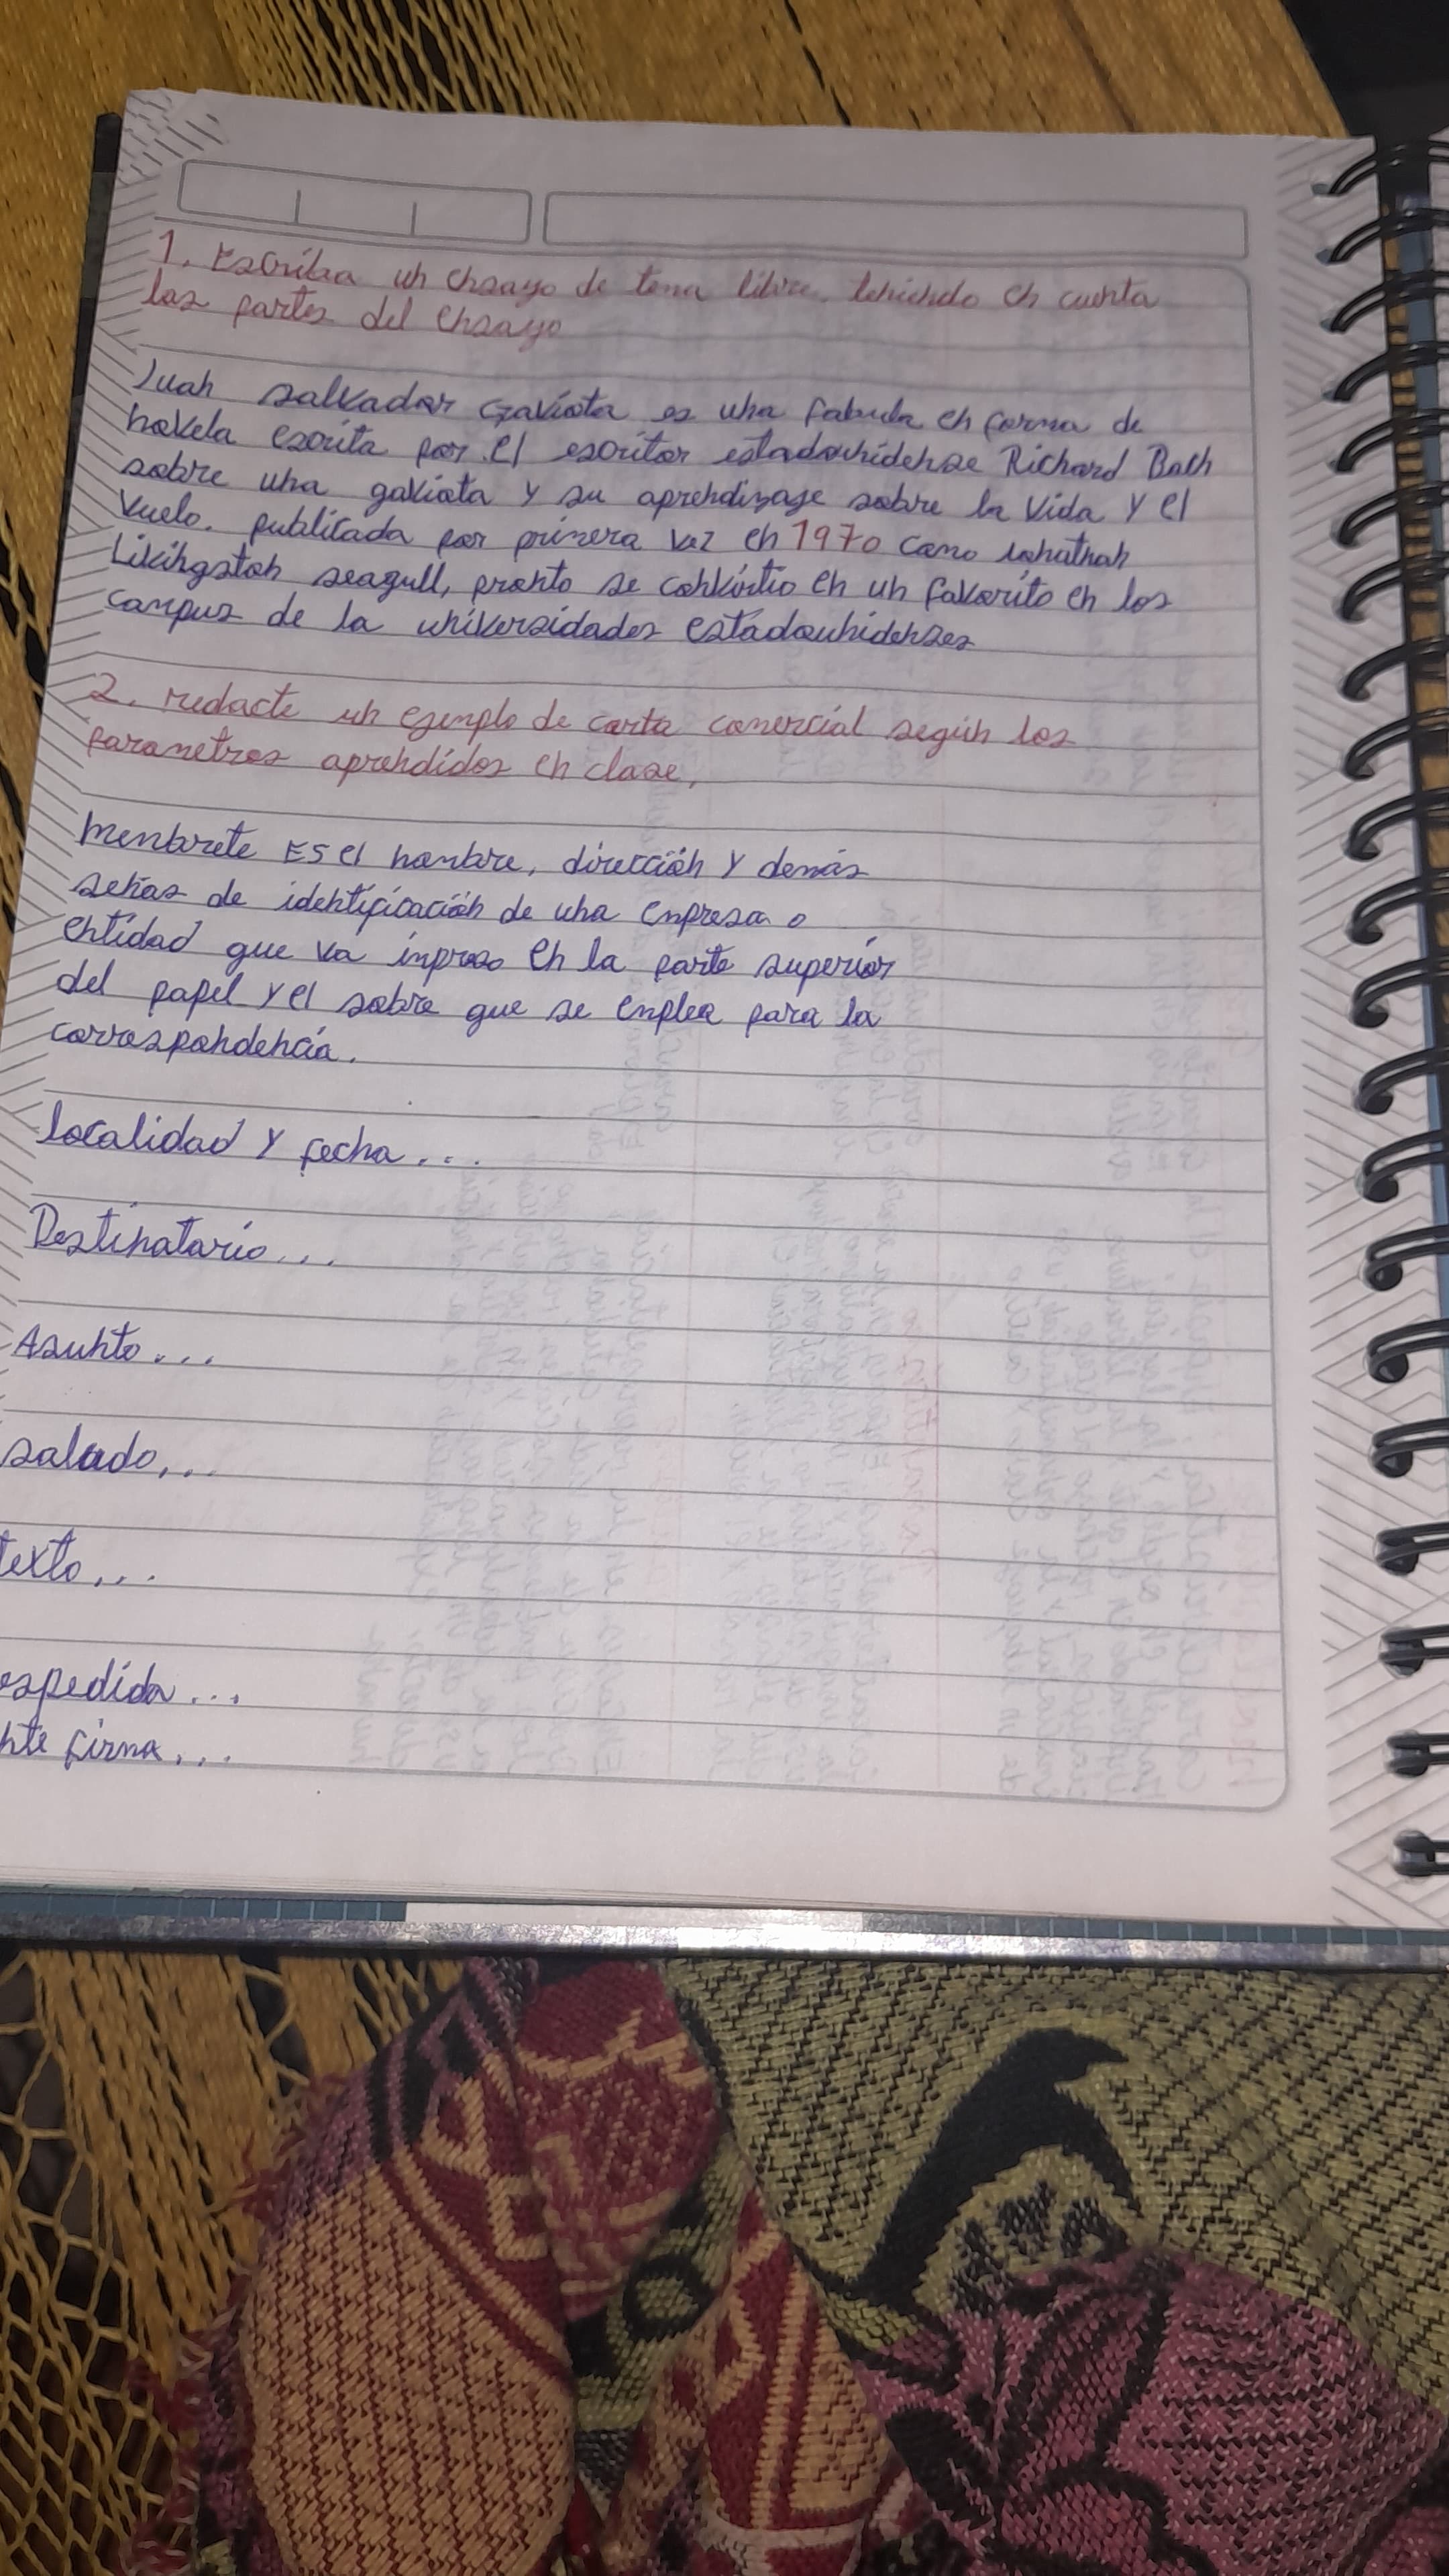 1. Escriba un ensayo de tema libre, teniendo en cuenta
las partes del ensayo
Juan salvador Gaviota es una fabula en forma de
novela escrita por el escritor estadounidense Richard Bach
sobre una gaviota y su aprendizaje sobre la vida y el
vuelo. publicada por primera vez en 1970 como
Livingston seagull, pronto se convirtio en un favorito en los
campus de la universidades estadounidenses
2. redacte un ejemplo de carta comercial según los
parametros aprendidos en clase.
menbrete ES el nombre, dirección y demás
señas de identificación de una empresa o
entidad que va impreso en la parte superior
del papel y el sobre que se emplea para la
correspondencia.
localidad y fecha...
Destinatario...
Asunto...
saludo...
texto...
espedida...
nte firma...